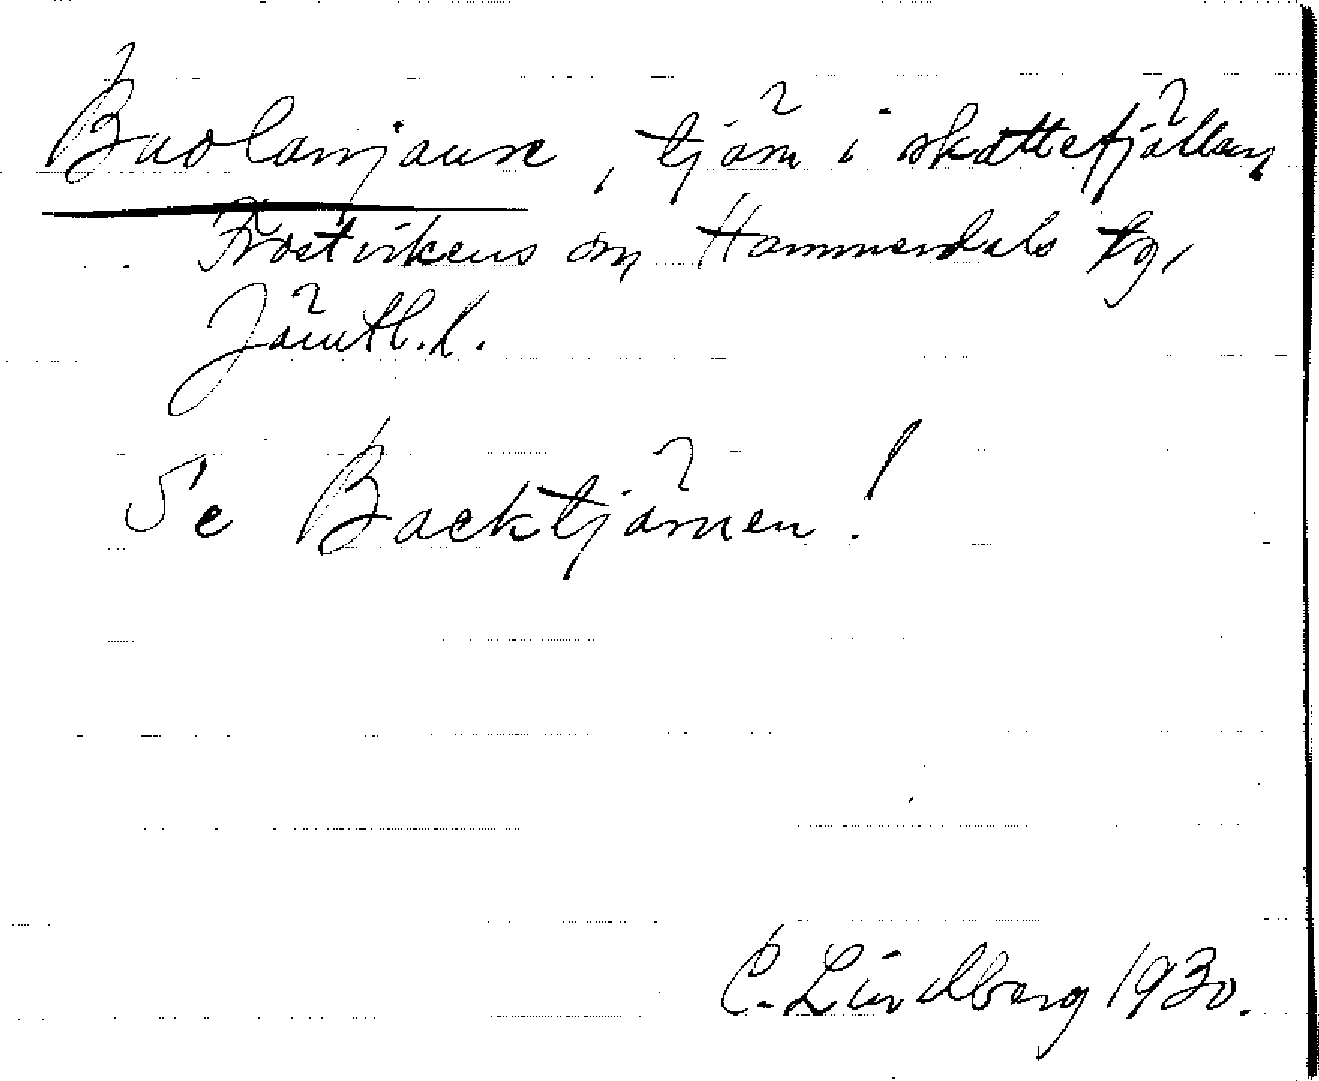 Buolanjaure, tjärn i skattefjällen,
Frostvikens sn, Hammerdals tg,
Jämtl.l.
Se Backtjärnen!
C. Lindberg 1930.